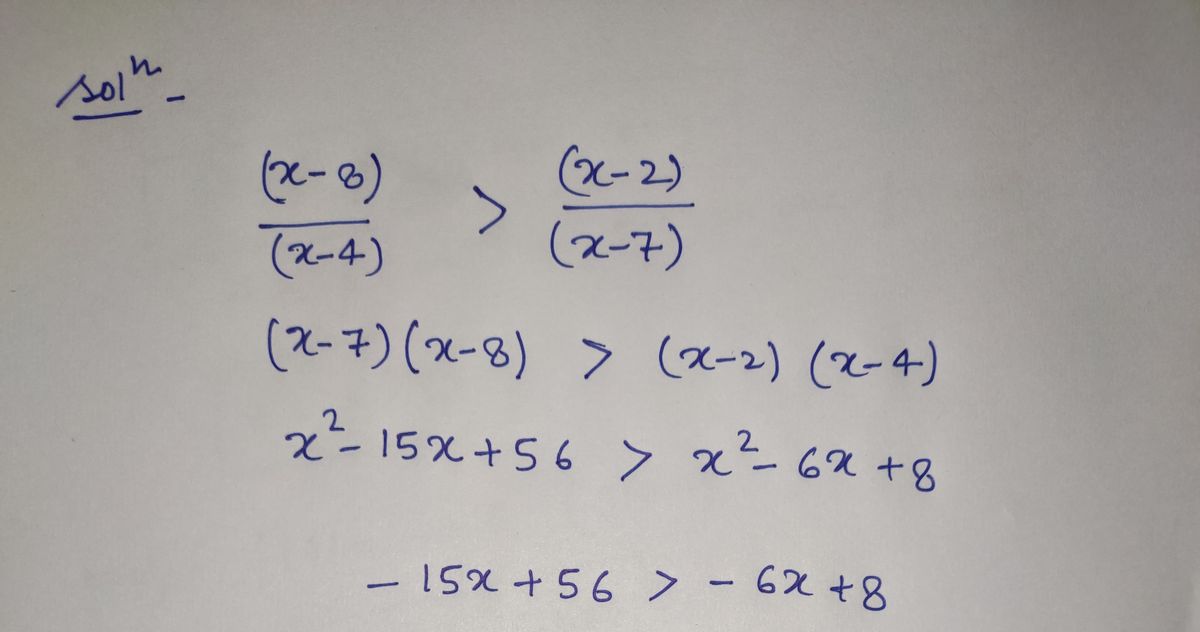 solⁿ -
(x-8) / (x-4) > (x-2) / (x-7)
(x-7)(x-8) > (x-2) (x-4)
x² - 15x + 56 > x² - 6x + 8
- 15x + 56 > - 6x + 8